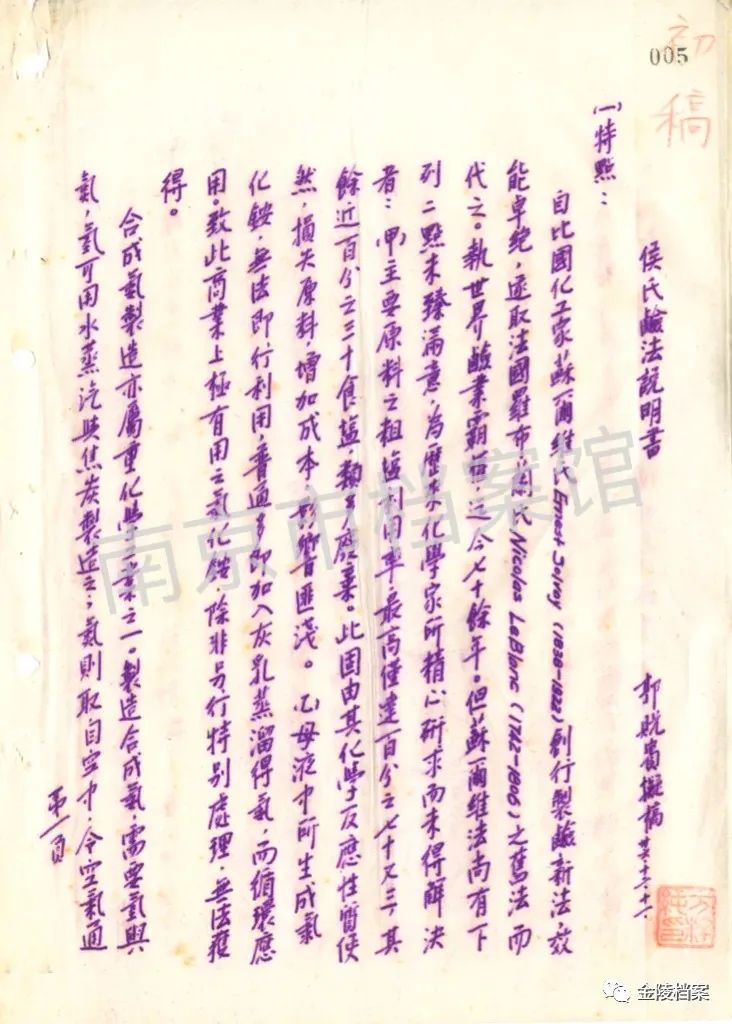 初稿
005
侯氏鹼法説明書
擬稿
(一)特點：
自比國化工家蘇爾維氏Ernest Solvay (1838-1922)創行製鹼新法，效
能卓絶，遂取法國羅布蘭氏Nicolas LeBlanc (1742-1806)之舊法而
代之。執世界鹼業霸首迄今七十餘年。但蘇爾維法尚有下
列二點未臻滿意，為歷來化學家所精心研求而未得解決
者：(甲)主要原料之粗鹽利用率最高僅達百分之七十又三，其
餘近百分之三十食鹽類多廢棄。此固由其化學反應性質使
然，損失原料，增加成本，影響匪淺。(乙)母液中所生成氯
化銨，無法即行利用，普通多即加入灰乳蒸溜得氨，而循環應
用。致此商業上極有用之氯化銨，除非另行特别處理，無法獲
得。
合成氨製造亦屬重化學工業之一。製造合成氨，需要氫與
氮，氫可用水蒸汽與焦炭製造之；氮則取自空中，令空氣通
第一頁
南京市档案馆
金陵档案